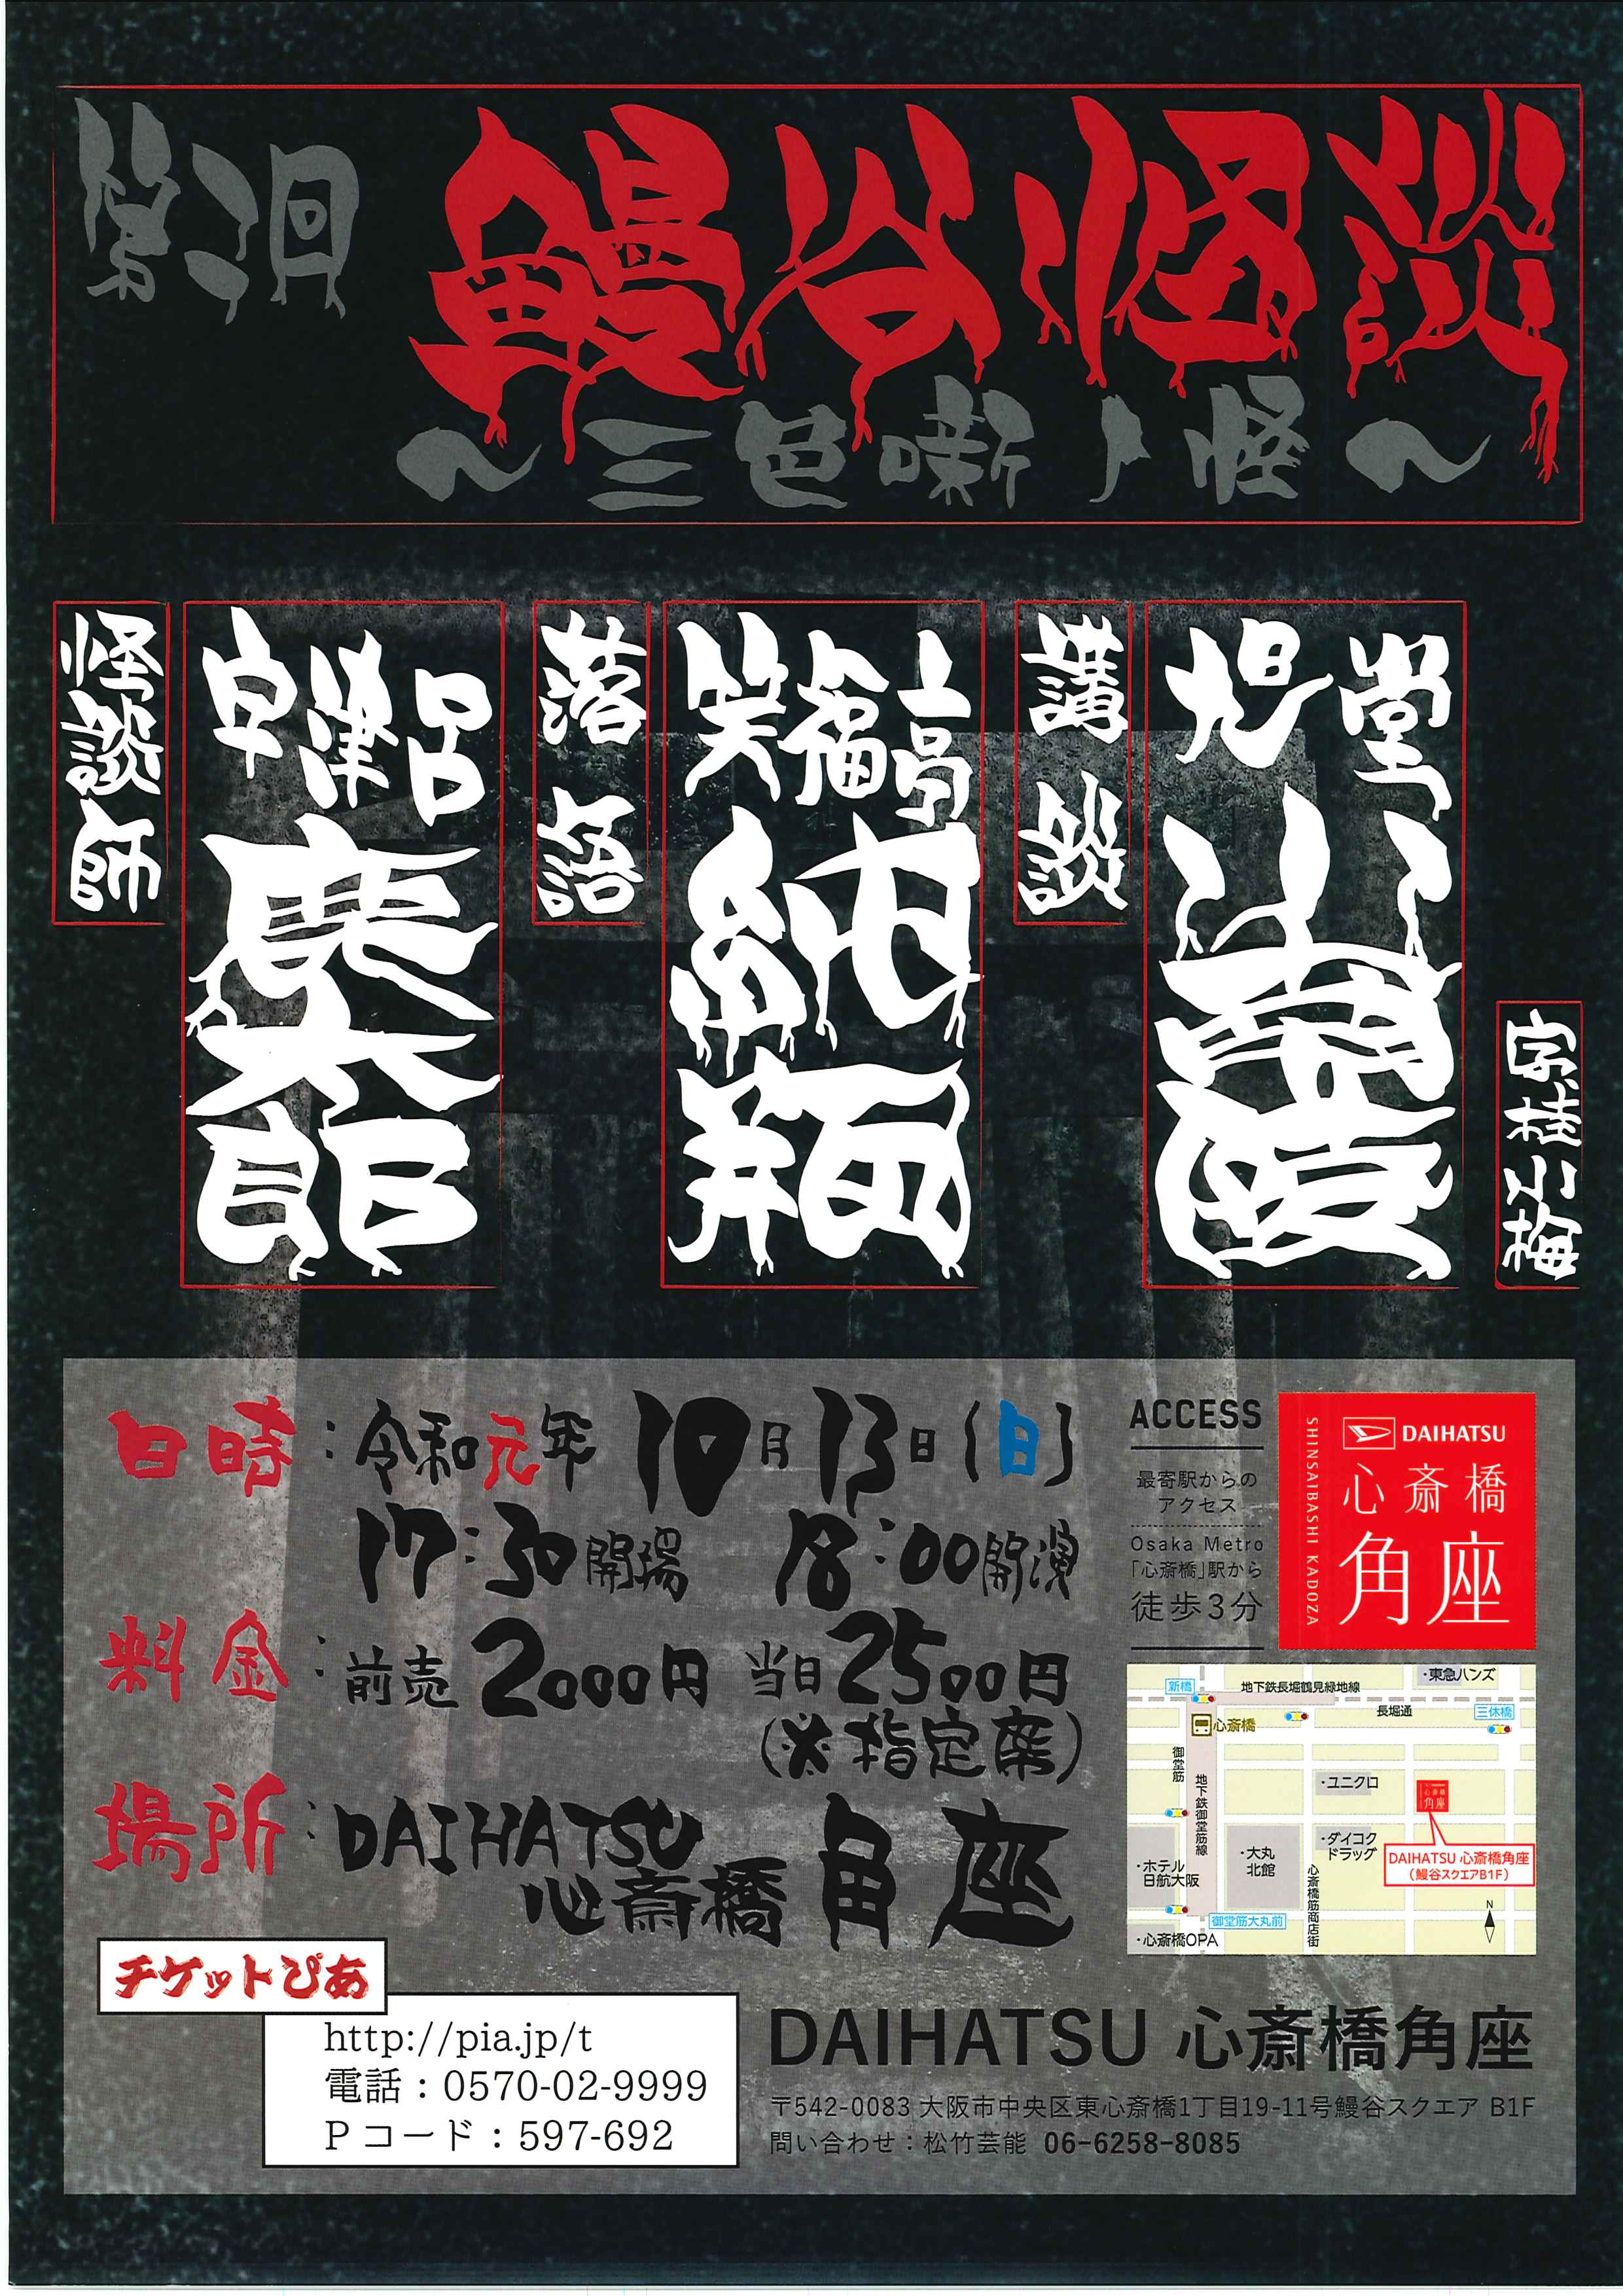 鰻谷怪談
～三色噺ノ怪～
怪談師
宇津呂
鹿太郎
落語
笑福亭
純瓶
講談
旭堂
小南陵
字桂小梅
日時：令和元年 10月13日(日)
17:30開場 18:00開演
料金：前売2000円 当日2500円
(※指定席)
場所：DAIHATSU
心斎橋角座
ACCESS
最寄駅からの
アクセス
Osaka Metro
「心斎橋」駅から
徒歩3分
SHINSAIBASHI KADOZA
DAIHATSU
心斎橋
角座
・東急ハンズ
新橋
地下鉄長堀鶴見緑地線
長堀通
三休橋
心斎橋
御堂筋
地下鉄御堂筋線
・ユニクロ
心斎橋
角座
・ダイコク
ドラッグ
DAIHATSU 心斎橋角座
（鰻谷スクエアB1F）
・ホテル
日航大阪
・大丸
北館
心斎橋筋商店街
N
御堂筋大丸前
・心斎橋OPA
チケットぴあ
http://pia.jp/t
電話：0570-02-9999
Pコード：597-692
DAIHATSU 心斎橋角座
〒542-0083 大阪市中央区東心斎橋1丁目19-11号鰻谷スクエア B1F
問い合わせ：松竹芸能 06-6258-8085